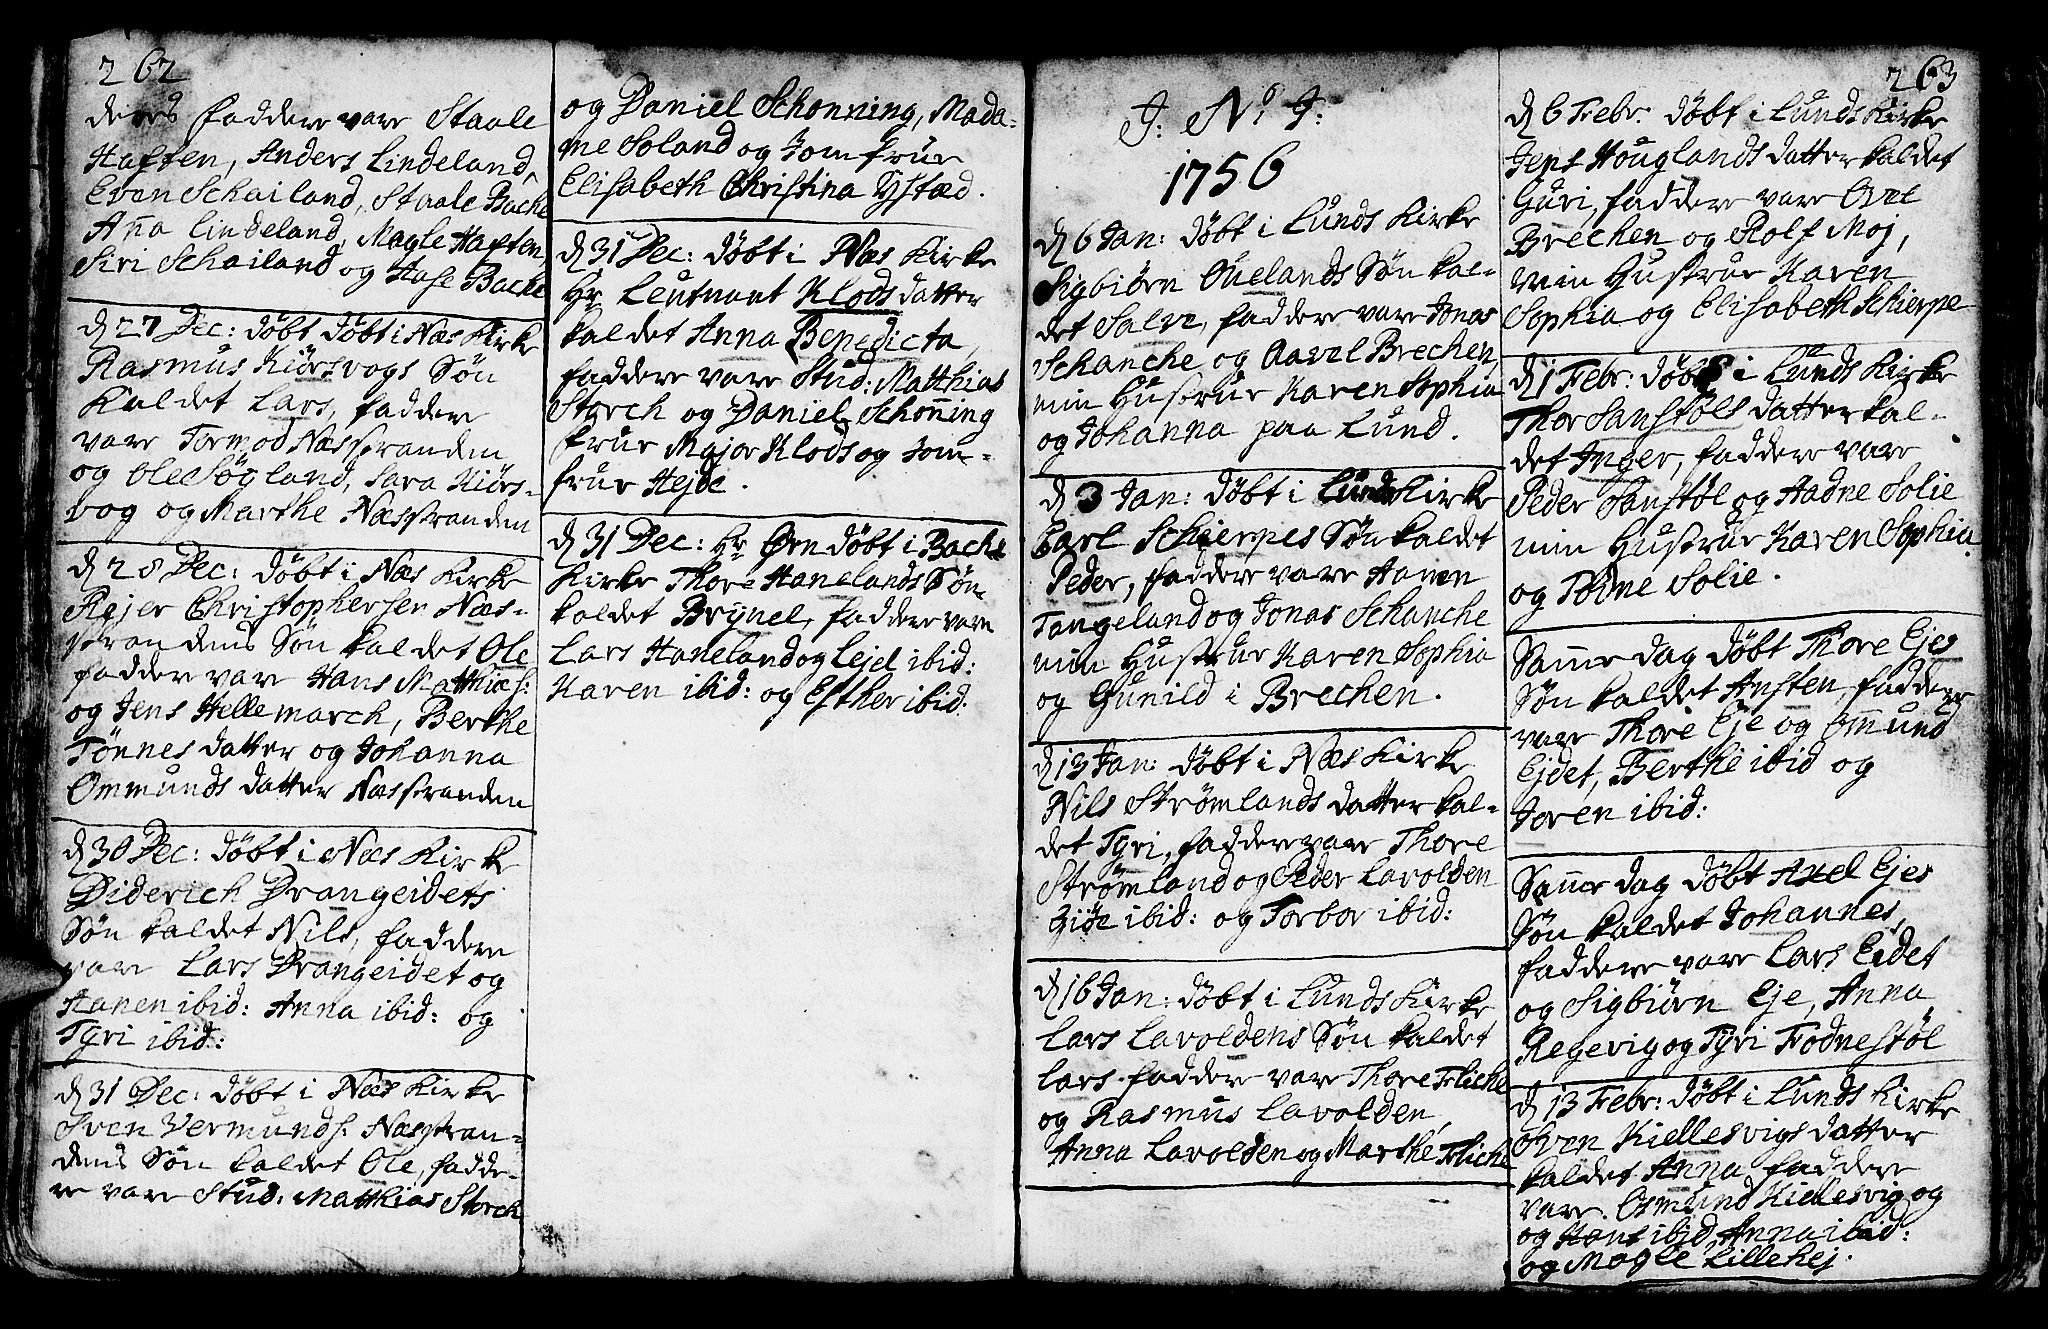 262
deres faddere vare Staale
Haften, Anders Lindeland,
Even Schailand, Staale Bache
Anna Lindeland, Magle Haften,
Siri Schailand og Aase Bache
d 27 Dec: døbt døbt i Næs Kirke
Rasmus Kiørsvogs Søn
Kaldet Lars, faddere
vare Tormod Næsstranden
og Ole Søgland, Sara Kiørs-
vog og Marthe Næsstranden
d 28 Dec: døbt i Næs Kirke
Rejer Christophersen Næs-
strandens Søn kaldet Ole
fadder var Hans Matthias:
og Jens Hellemarch, Berthe
Tønnes datter og Johanna
Ommunds datter Næsstranden
d 30 Dec: døbt i Næs Kirke
Diderich Drangeidets
Søn kaldet Nils, faddere
vare Lars Drangeidet og
Hanen ibid: Anna ibid: og
Tyri ibid:
d 31 Dec: døbt i Næs Kirke
Sven Vermunds: Næsstran-
dens Søn kaldet Ole, fadde-
re vare Stud: Matthias Storch
og Daniel Schonning, Mada-
me Soland og Jomfrue
Elisabeth Christina Systæd.
d 31 Dec: døbt i Næs Kirke
Hr Leutnant Klods datter
kaldet Anna Benedicta,
faddere vare Stud: Matthias
Storch og Daniel Schonning
frue Major Klods og Jom-
frue Hejde.
d 31 Dec: Hr Ørn døbt i Bache
Kirke Thore Hanelands Søn
kaldet Brynel, faddere vare
Lars Haneland og Lejel ibid:
Karen ibid: og Esther ibid:
J: N: J:
1756
d 6 Jan: døbt i Lunds Kirke
Sigbiørn Ouelands Søn kal-
det Salve, faddere vare Jonas
Schanche og Aavel Brechen,
min Hustrue Karen Sophia
og Johanna paa Lund.
d 3 Jan: døbt i Lunds Kirke
Carl Schierpes Søn kaldet
Peder, faddere vare Aanen
Tangeland og Jonas Schanche
min Hustrue Karen Sophia
og Gunild i Brechen.
d 13 Jan: døbt i Næs Kirke
Nils Strømlands datter kal-
det Tyri, faddere vare Thore
Strømland og Peder Lavolden
Giøe ibid: og Torbor ibid:
d 16 Jan: døbt i Lunds Kirke
Lars Lavoldens Søn kaldet
Lars faddere vare Thore Fliche
og Rasmus Lavolden,
Anna Lavolden og Marthe Fliche
263
d 6 Febr: døbt i Lunds Kirke
Jens Houglands datter kaldet
Guri, faddere vare Ovel
Brechen og Rolf Moj,
min Hustrue Karen
Sophia og Elisabeth Schierpe
d 1 Febr: døbt i Lunds Kirke
Thor Sanstøls datter kal-
det Inger, faddere vare
Peder Sanstøl og Aadne Solie
min Hustrue Karen Sophia
og Todne Solie.
Samme dag døbt Thore Ejes
Søn kaldet Ansten, faddere
vare Thore Eje og Ommund
Ejdet, Berthe ibid og
Joren ibid:
Samme dag døbt Axel Ejes
Søn kaldet Johannes,
faddere vare Lars Eidet
og Sigbiørn Eje, Anna
Regevig og Tyri Fodnestøl
d 13 Febr: døbt i Lunds Kirke
Sven Kiellesvigs datter
kaldet Anna faddere
vare Osmund Kiellesvig og
og Hans ibid, Anna ibid:
og Magle Lillehej.